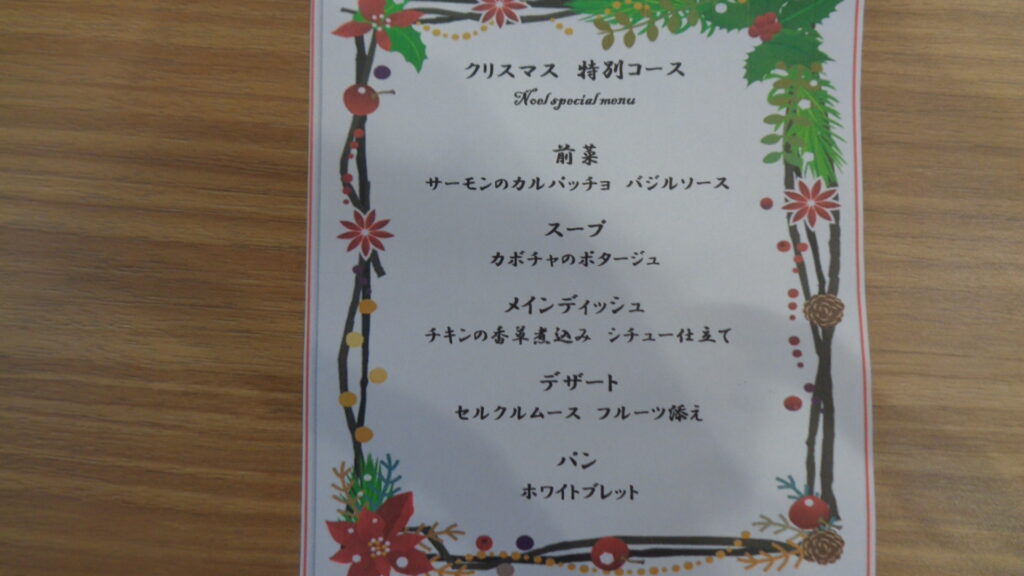 クリスマス 特別コース
Noel special menu
前菜
サーモンのカルパッチョ バジルソース
スープ
カボチャのポタージュ
メインディッシュ
チキンの香草煮込み シチュー仕立て
デザート
セルクルムース フルーツ添え
パン
ホワイトブレット